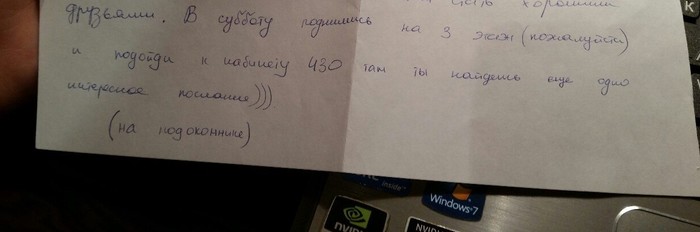 хорошими
друзьями. В субботу поднимись на 3 этаж (пожалуйста)
и подойди к кабинету 430 там ты найдешь еще одно
интересное послание)))
(на подоконнике)
K
inside™
Windows 7
NVIDIA